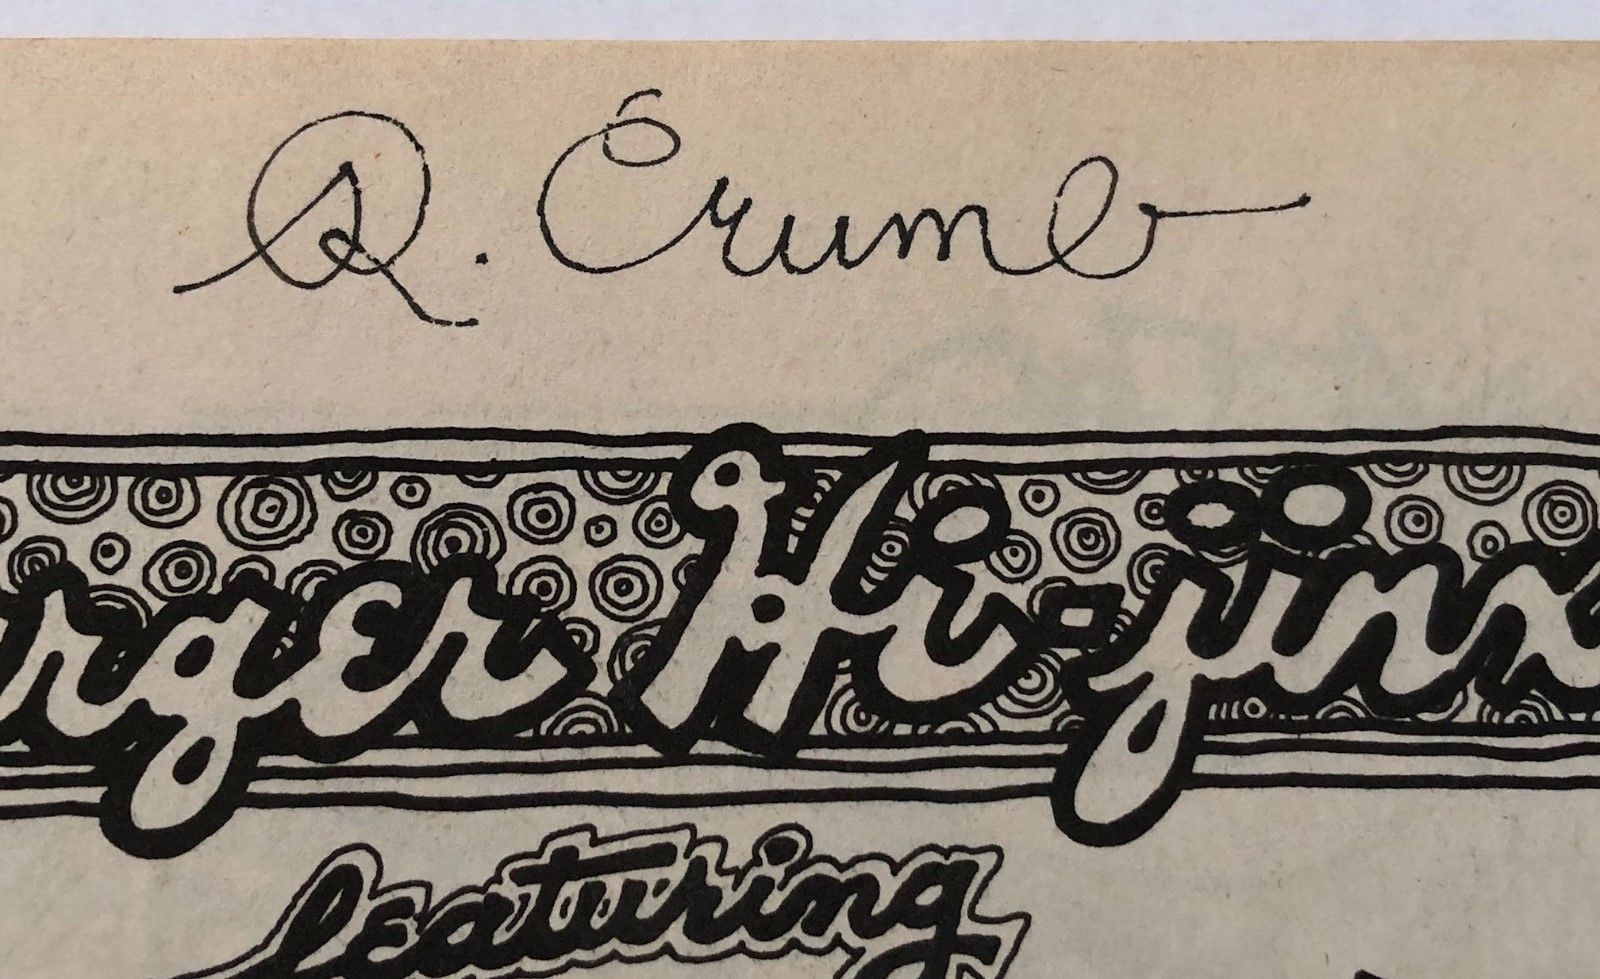 R. Crumb
rger Hi-jinx
featuring